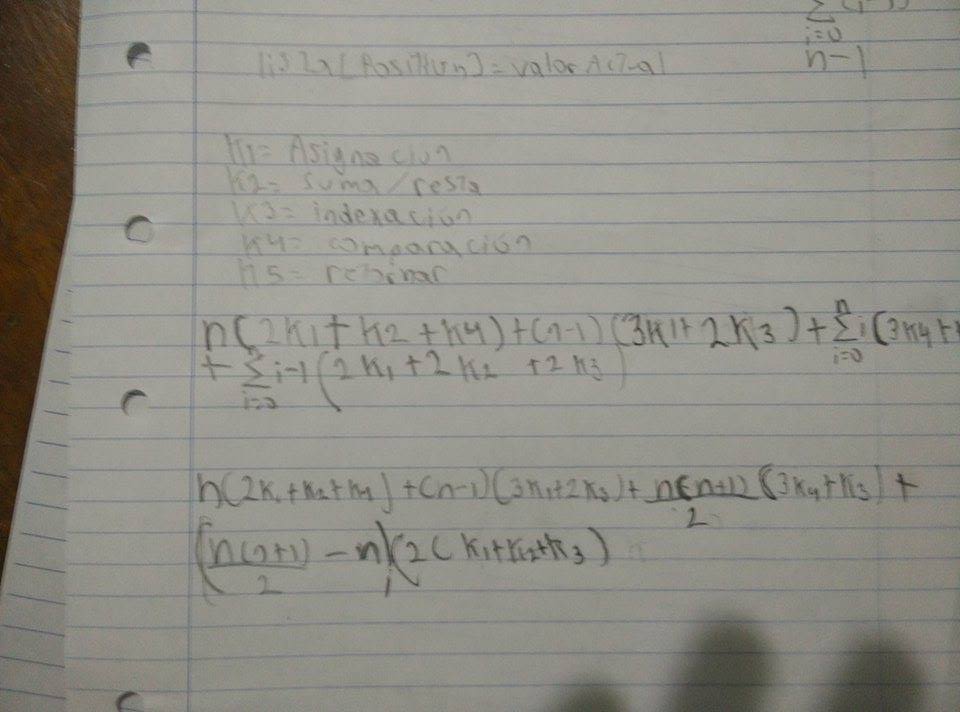 Σ (i-1)
i=0
n-1
lista[Position]=valorActual
K1= Asignacion
K2= suma/resta
K3= indexación
K4= comparación
K5= retornar
n(2K1+K2+K4)+(n-1)(3K1+2K3)+Σi(3K4+
n
i=0
+Σi-1(2K1+2K2+2K3)
i=0
n(2K1+K2+K4)+(n-1)(3K1+2K3)+n(n+1)/2(3K4+K3)+
(n(n+1)/2-n)(2(K1+K2+K3)